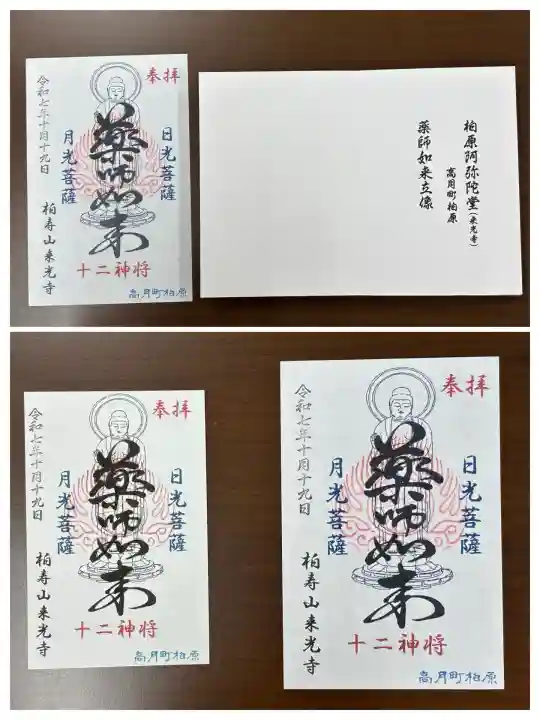 奉拝
日光菩薩
薬師如来
月光菩薩
令和七年十月十九日
柏寿山来光寺
十二神将
高月町柏原
柏原阿弥陀堂（来光寺）
高月町柏原
薬師如来立像
奉拝
日光菩薩
薬師如来
月光菩薩
令和七年十月十九日
柏寿山来光寺
十二神将
高月町柏原
奉拝
日光菩薩
薬師如来
月光菩薩
令和七年十月十九日
柏寿山来光寺
十二神将
高月町柏原